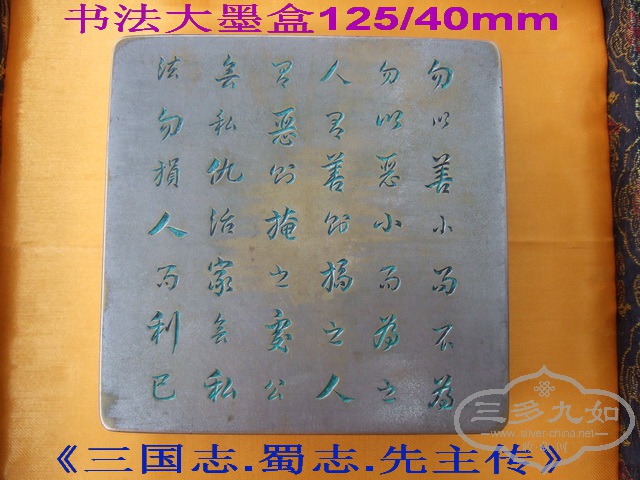 书法大墨盒125/40mm
勿以善小而不為
勿以恶小而為之
人有善则揚之人
有惡则掩之處公
無私仇治家無私
法勿損人而利已
三多九如
www.silver-china.net
《三国志.蜀志.先主传》